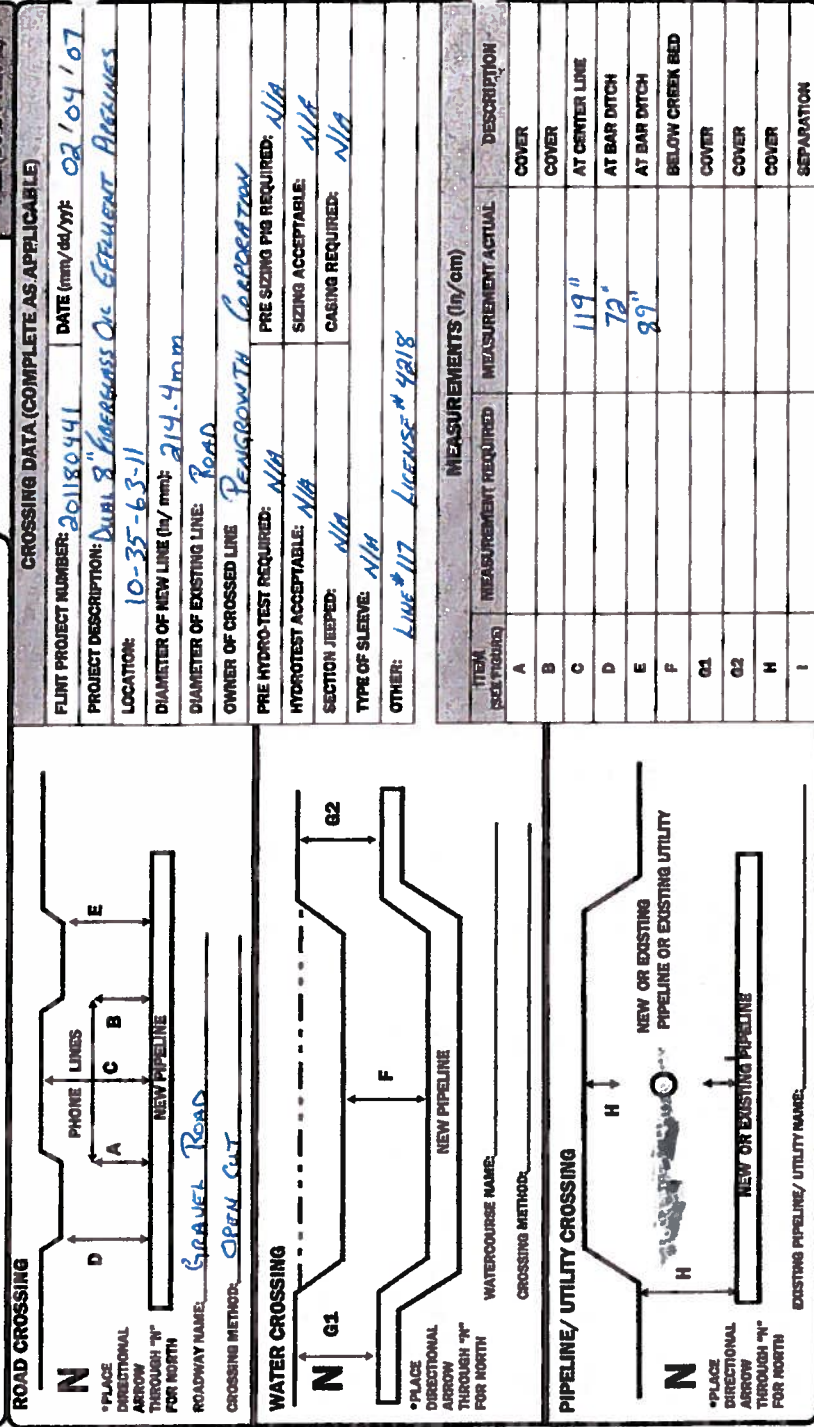 ROAD CROSSING
N
*PLACE
DIRECTIONAL
ARROW
THROUGH "N"
FOR NORTH
D
A
PHONE LINES
C
B
E
NEW PIPELINE
ROADWAY NAME: GRAVEL ROAD
CROSSING METHOD: OPEN CUT
WATER CROSSING
G1
N
*PLACE
DIRECTIONAL
ARROW
THROUGH "N"
FOR NORTH
F
G2
NEW PIPELINE
WATERCOURSE NAME:
CROSSING METHOD:
PIPELINE/ UTILITY CROSSING
H
N
*PLACE
DIRECTIONAL
ARROW
THROUGH "N"
FOR NORTH
H
NEW OR EXISTING
PIPELINE OR EXISTING UTILITY
NEW OR EXISTING PIPELINE
EXISTING PIPELINE/ UTILITY NAME:
CROSSING DATA (COMPLETE AS APPLICABLE)
FLINT PROJECT NUMBER: 201180441 DATE (mm/dd/yy): 02/04/07
PROJECT DESCRIPTION: DUAL 8" FIBERGLASS OIL EFFLUENT PIPELINES
LOCATION: 10-35-63-11
DIAMETER OF NEW LINE (in/ mm): 214.4mm
DIAMETER OF EXISTING LINE: ROAD
OWNER OF CROSSED LINE PENGROWTH CORPORATION
PRE HYDRO-TEST REQUIRED: N/A PRE SIZING PIG REQUIRED: N/A
HYDROTEST ACCEPTABLE: N/A SIZING ACCEPTABLE: N/A
SECTION JEEPED: N/A CASING REQUIRED: N/A
TYPE OF SLEEVE: N/A
OTHER: LINE # 117 LICENSE # 4218
MEASUREMENTS (in/cm)
ITEM (SEE FIGURE) MEASUREMENT REQUIRED MEASUREMENT ACTUAL DESCRIPTION
A COVER
B COVER
C 119" AT CENTER LINE
D 72" AT BAR DITCH
E 89" AT BAR DITCH
F BELOW CREEK BED
G1 COVER
G2 COVER
H COVER
I SEPARATION